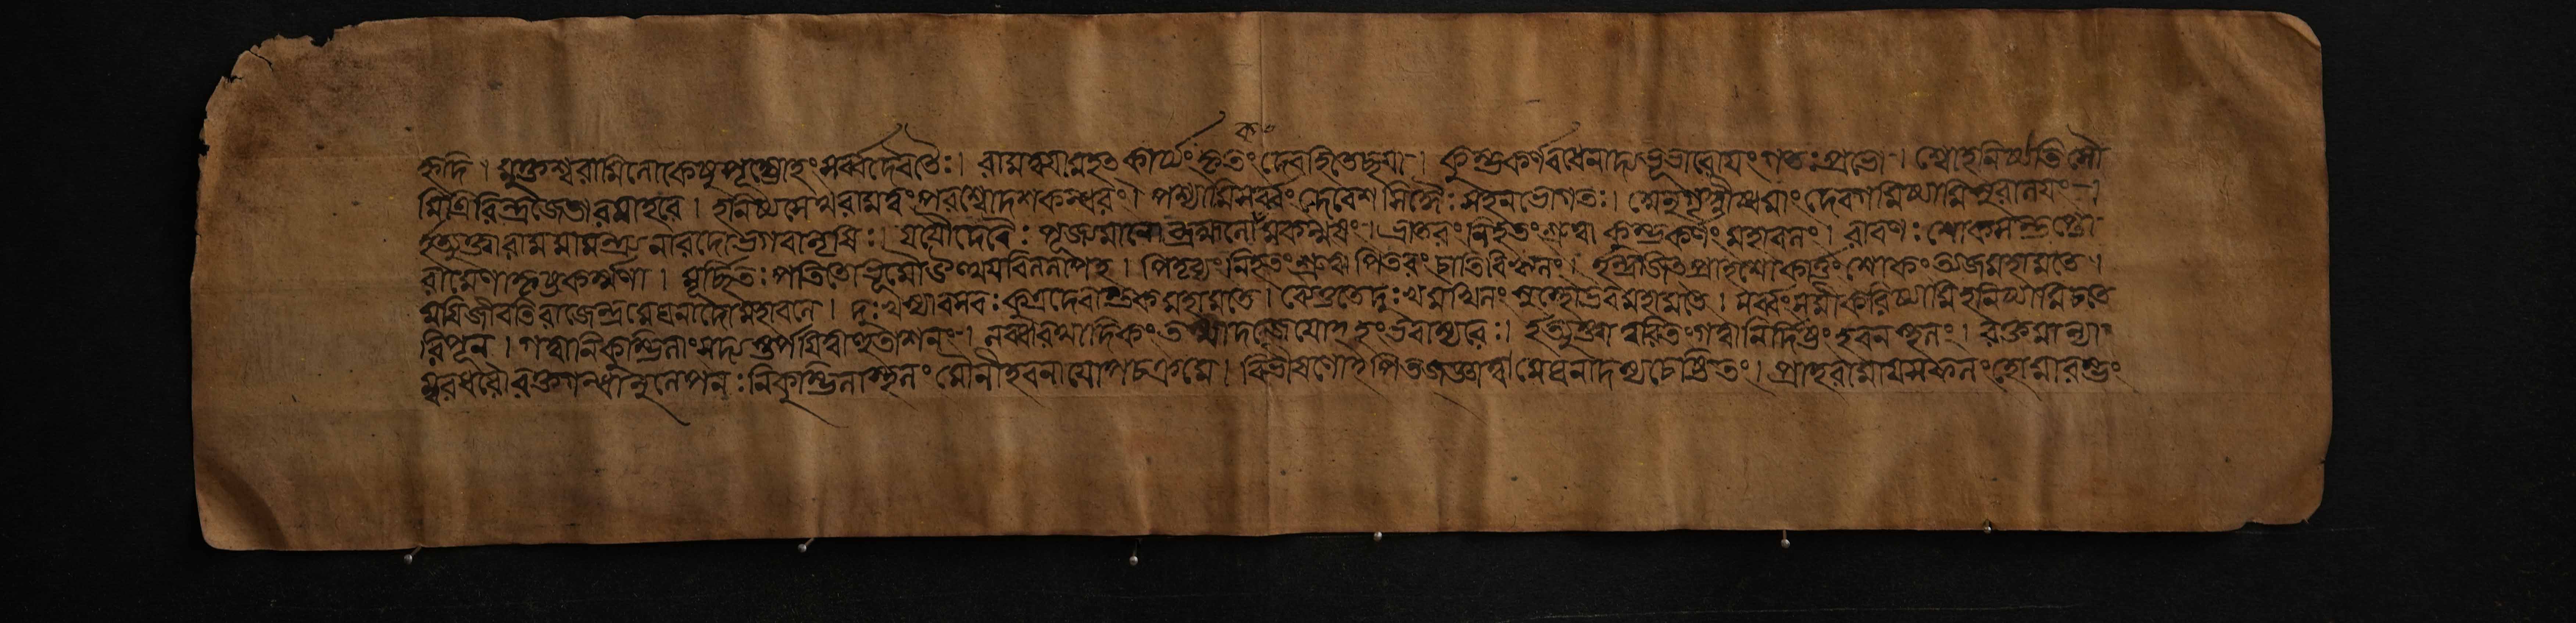 হৃদি । মুক্তশ্চরামি লোকেষু পূজ্যোহং সর্ব্বদৈবতৈঃ । রাম ত্বয়া মহৎ কার্য্যং কৃতং দেবহিতেচ্ছয়া । কুম্ভকর্ণবধেনাদ্য ভূভারোয়ং গতঃ প্রভো । শ্বো হনিষ্যতি সৌ
মিত্রিরিন্দ্রজেতারমাহবে । হনিষ্যসেথ রাম ত্বং পরশ্বো দশকন্ধরং । পশ্যামি সর্ব্বং দেবেশ সিদ্ধৈঃ সহ নভোগতঃ । অনুগৃহ্ণীষ্ব মাং দেব গমিষ্যামি সুরালয়ং ।
ইত্যুক্ত্বা রামমামন্ত্র্য নারদো ভগবানৃষিঃ । যযৌ দেবৈঃ পূজ্যমানো ব্রহ্মলোকমকল্মষং । ভ্রাতরং নিহতং শ্রুত্বা কুম্ভকর্ণং মহাবলং । রাবণঃ শোকসন্তপ্তো
রামেণাক্লিষ্টকর্ম্মণা । মূর্চ্ছিতঃ পতিতো ভূমৌ উত্থায় বিললাপ হ । পিতৃব্যং নিহতং শ্রুত্বা পিতরং চাতিবিহ্বলং । ইন্দ্রজিৎ প্রাহ শোকার্ত্তং শোকং ত্যজ মহামতে ।
ময়ি জীবতি রাজেন্দ্র মেঘনাদে মহাবলে । দুঃখস্যাবসরঃ কুত্র দেবান্তক মহামতে । ব্যেতু তে দুঃখমখিলং স্বস্থো ভব মহামতে । সর্ব্বং সমীকরিষ্যামি হনিষ্যামি চ তে
রিপূন্ । গত্বা নিকুম্ভিলাং সদ্যস্তর্পয়িত্বা হুতাশনং । লব্ধ্বা রথাদিকং তস্মাদজেয়োহং ভবাম্যরেঃ । ইত্যুক্ত্বা ত্বরিতং গত্বা নির্দিষ্টং হবনস্থলং । রক্তমাল্যা
ম্বরধরো রক্তগন্ধানুলেপনঃ নিকুম্ভিলাস্থলং মৌনী হবনায়োপচক্রমে । বিভীষণোঽপি তজ্জ্ঞাত্বা মেঘনাদস্য চেষ্টিতং । প্রাহ রামায় সকলং হোমারম্ভং